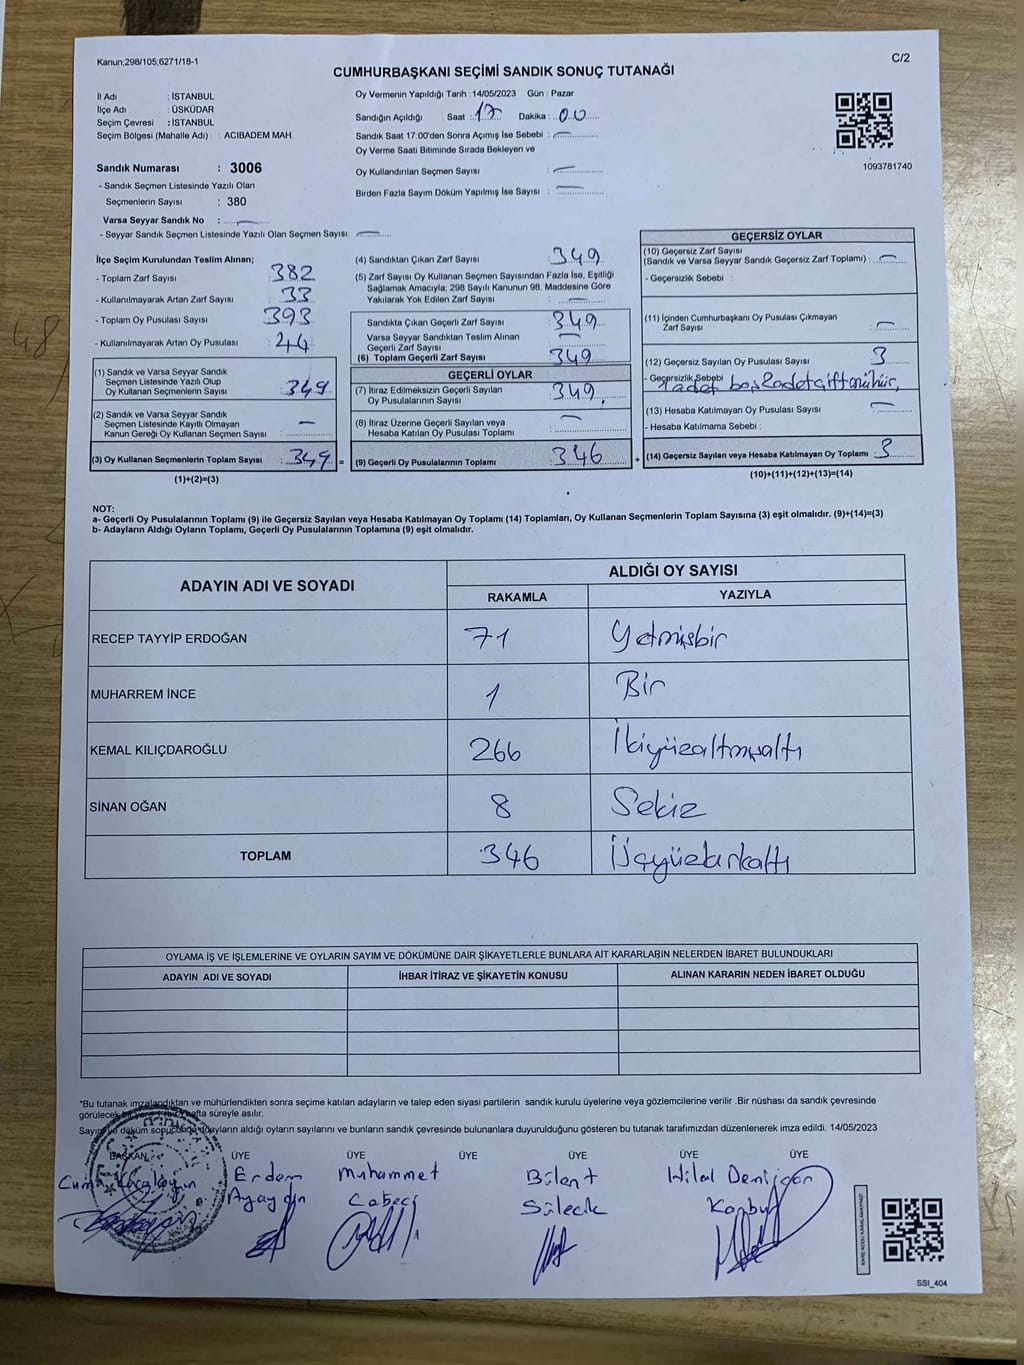 Kanun;298/105,6271/18-1
C/2
CUMHURBAŞKANI SEÇİMİ SANDIK SONUÇ TUTANAĞI
İl Adı : İSTANBUL
İlçe Adı : ÜSKÜDAR
Seçim Çevresi : İSTANBUL
Seçim Bölgesi (Mahalle Adı) : ACIBADEM MAH.
Sandık Numarası : 3006
- Sandık Seçmen Listesinde Yazılı Olan
Seçmenlerin Sayısı : 380
Varsa Seyyar Sandık No :
- Seyyar Sandık Seçmen Listesinde Yazılı Olan Seçmen Sayısı:
Oy Vermenin Yapıldığı Tarih : 14/05/2023 Gün : Pazar
Sandığın Açıldığı Saat : 17 Dakika : 00
Sandık Saat 17:00'den Sonra Açımış İse Sebebi :
Oy Verme Saati Bitiminde Sırada Bekleyen ve
Oy Kullandırılan Seçmen Sayısı :
Birden Fazla Sayım Döküm Yapılmış İse Sayısı :
1093781740
İlçe Seçim Kurulundan Teslim Alınan;
- Toplam Zarf Sayısı : 382
- Kullanılmayarak Artan Zarf Sayısı : 33
- Toplam Oy Pusulası Sayısı : 393
- Kullanılmayarak Artan Oy Pusulası : 44
(1) Sandık ve Varsa Seyyar Sandık
Seçmen Listesinde Yazılı Olup
Oy Kullanan Seçmenlerin Sayısı : 349
(2) Sandık ve Varsa Seyyar Sandık
Seçmen Listesinde Kayıtlı Olmayan
Kanun Gereği Oy Kullanan Seçmen Sayısı :
(3) Oy Kullanan Seçmenlerin Toplam Sayısı : 349 =
(1)+(2)=(3)
(4) Sandıktan Çıkan Zarf Sayısı : 349
(5) Zarf Sayısı Oy Kullanan Seçmen Sayısından Fazla İse, Eşitliği
Sağlamak Amacıyla; 298 Sayılı Kanunun 98. Maddesine Göre
Yakılarak Yok Edilen Zarf Sayısı :
Sandıkta Çıkan Geçerli Zarf Sayısı : 349
Varsa Seyyar Sandıktan Teslim Alınan
Geçerli Zarf Sayısı :
(6) Toplam Geçerli Zarf Sayısı : 349
GEÇERLİ OYLAR
(7) İtiraz Edilmeksizin Geçerli Sayılan
Oy Pusulalarının Sayısı : 349
(8) İtiraz Üzerine Geçerli Sayılan veya
Hesaba Katılan Oy Pusulası Toplamı :
(9) Geçerli Oy Pusulalarının Toplamı : 346 +
GEÇERSİZ OYLAR
(10) Geçersiz Zarf Sayısı
(Sandık ve Varsa Seyyar Sandık Geçersiz Zarf Toplamı) :
- Geçersizlik Sebebi :
(11) İçinden Cumhurbaşkanı Oy Pusulası Çıkmayan
Zarf Sayısı :
(12) Geçersiz Sayılan Oy Pusulası Sayısı : 3
- Geçersizlik Sebebi : 1 adet boş 2 adet çift mühür
(13) Hesaba Katılmayan Oy Pusulası Sayısı :
- Hesaba Katılmama Sebebi :
(14) Geçersiz Sayılan veya Hesaba Katılmayan Oy Toplamı : 3
(10)+(11)+(12)+(13)=(14)
NOT:
a- Geçerli Oy Pusulalarının Toplamı (9) ile Geçersiz Sayılan veya Hesaba Katılmayan Oy Toplamı (14) Toplamları, Oy Kullanan Seçmenlerin Toplam Sayısına (3) eşit olmalıdır. (9)+(14)=(3)
b- Adayların Aldığı Oyların Toplamı, Geçerli Oy Pusulalarının Toplamına (9) eşit olmalıdır.
ADAYIN ADI VE SOYADI
ALDIĞI OY SAYISI
RAKAMLA YAZIYLA
RECEP TAYYİP ERDOĞAN 71 Yetmişbir
MUHARREM İNCE 1 Bir
KEMAL KILIÇDAROĞLU 266 İkiyüzaltmışaltı
SİNAN OĞAN 8 Sekiz
TOPLAM 346 Üçyüzkırkaltı
OYLAMA İŞ VE İŞLEMLERİNE VE OYLARIN SAYIM VE DÖKÜMÜNE DAİR ŞİKAYETLERLE BUNLARA AİT KARARLARIN NELERDEN İBARET BULUNDUKLARI
ADAYIN ADI VE SOYADI İHBAR İTİRAZ VE ŞİKAYETİN KONUSU ALINAN KARARIN NEDEN İBARET OLDUĞU
*Bu tutanak imzalandıktan ve mühürlendikten sonra seçime katılan adayların ve talep eden siyasi partilerin sandık kurulu üyelerine veya gözlemcilerine verilir .Bir nüshası da sandık çevresinde
görülecek bir yere 1 hafta süreyle asılır.
Sayım ve döküm sonucunda adayların aldığı oyların sayılarını ve bunların sandık çevresinde bulunanlara duyurulduğunu gösteren bu tutanak tarafımızdan düzenlenerek imza edildi. 14/05/2023
BAŞKAN ÜYE ÜYE ÜYE ÜYE ÜYE
Erdem Muhammet Bülent Hilal
Sülecik
KARE KODU KARALAMAYINIZ!
SSI_404